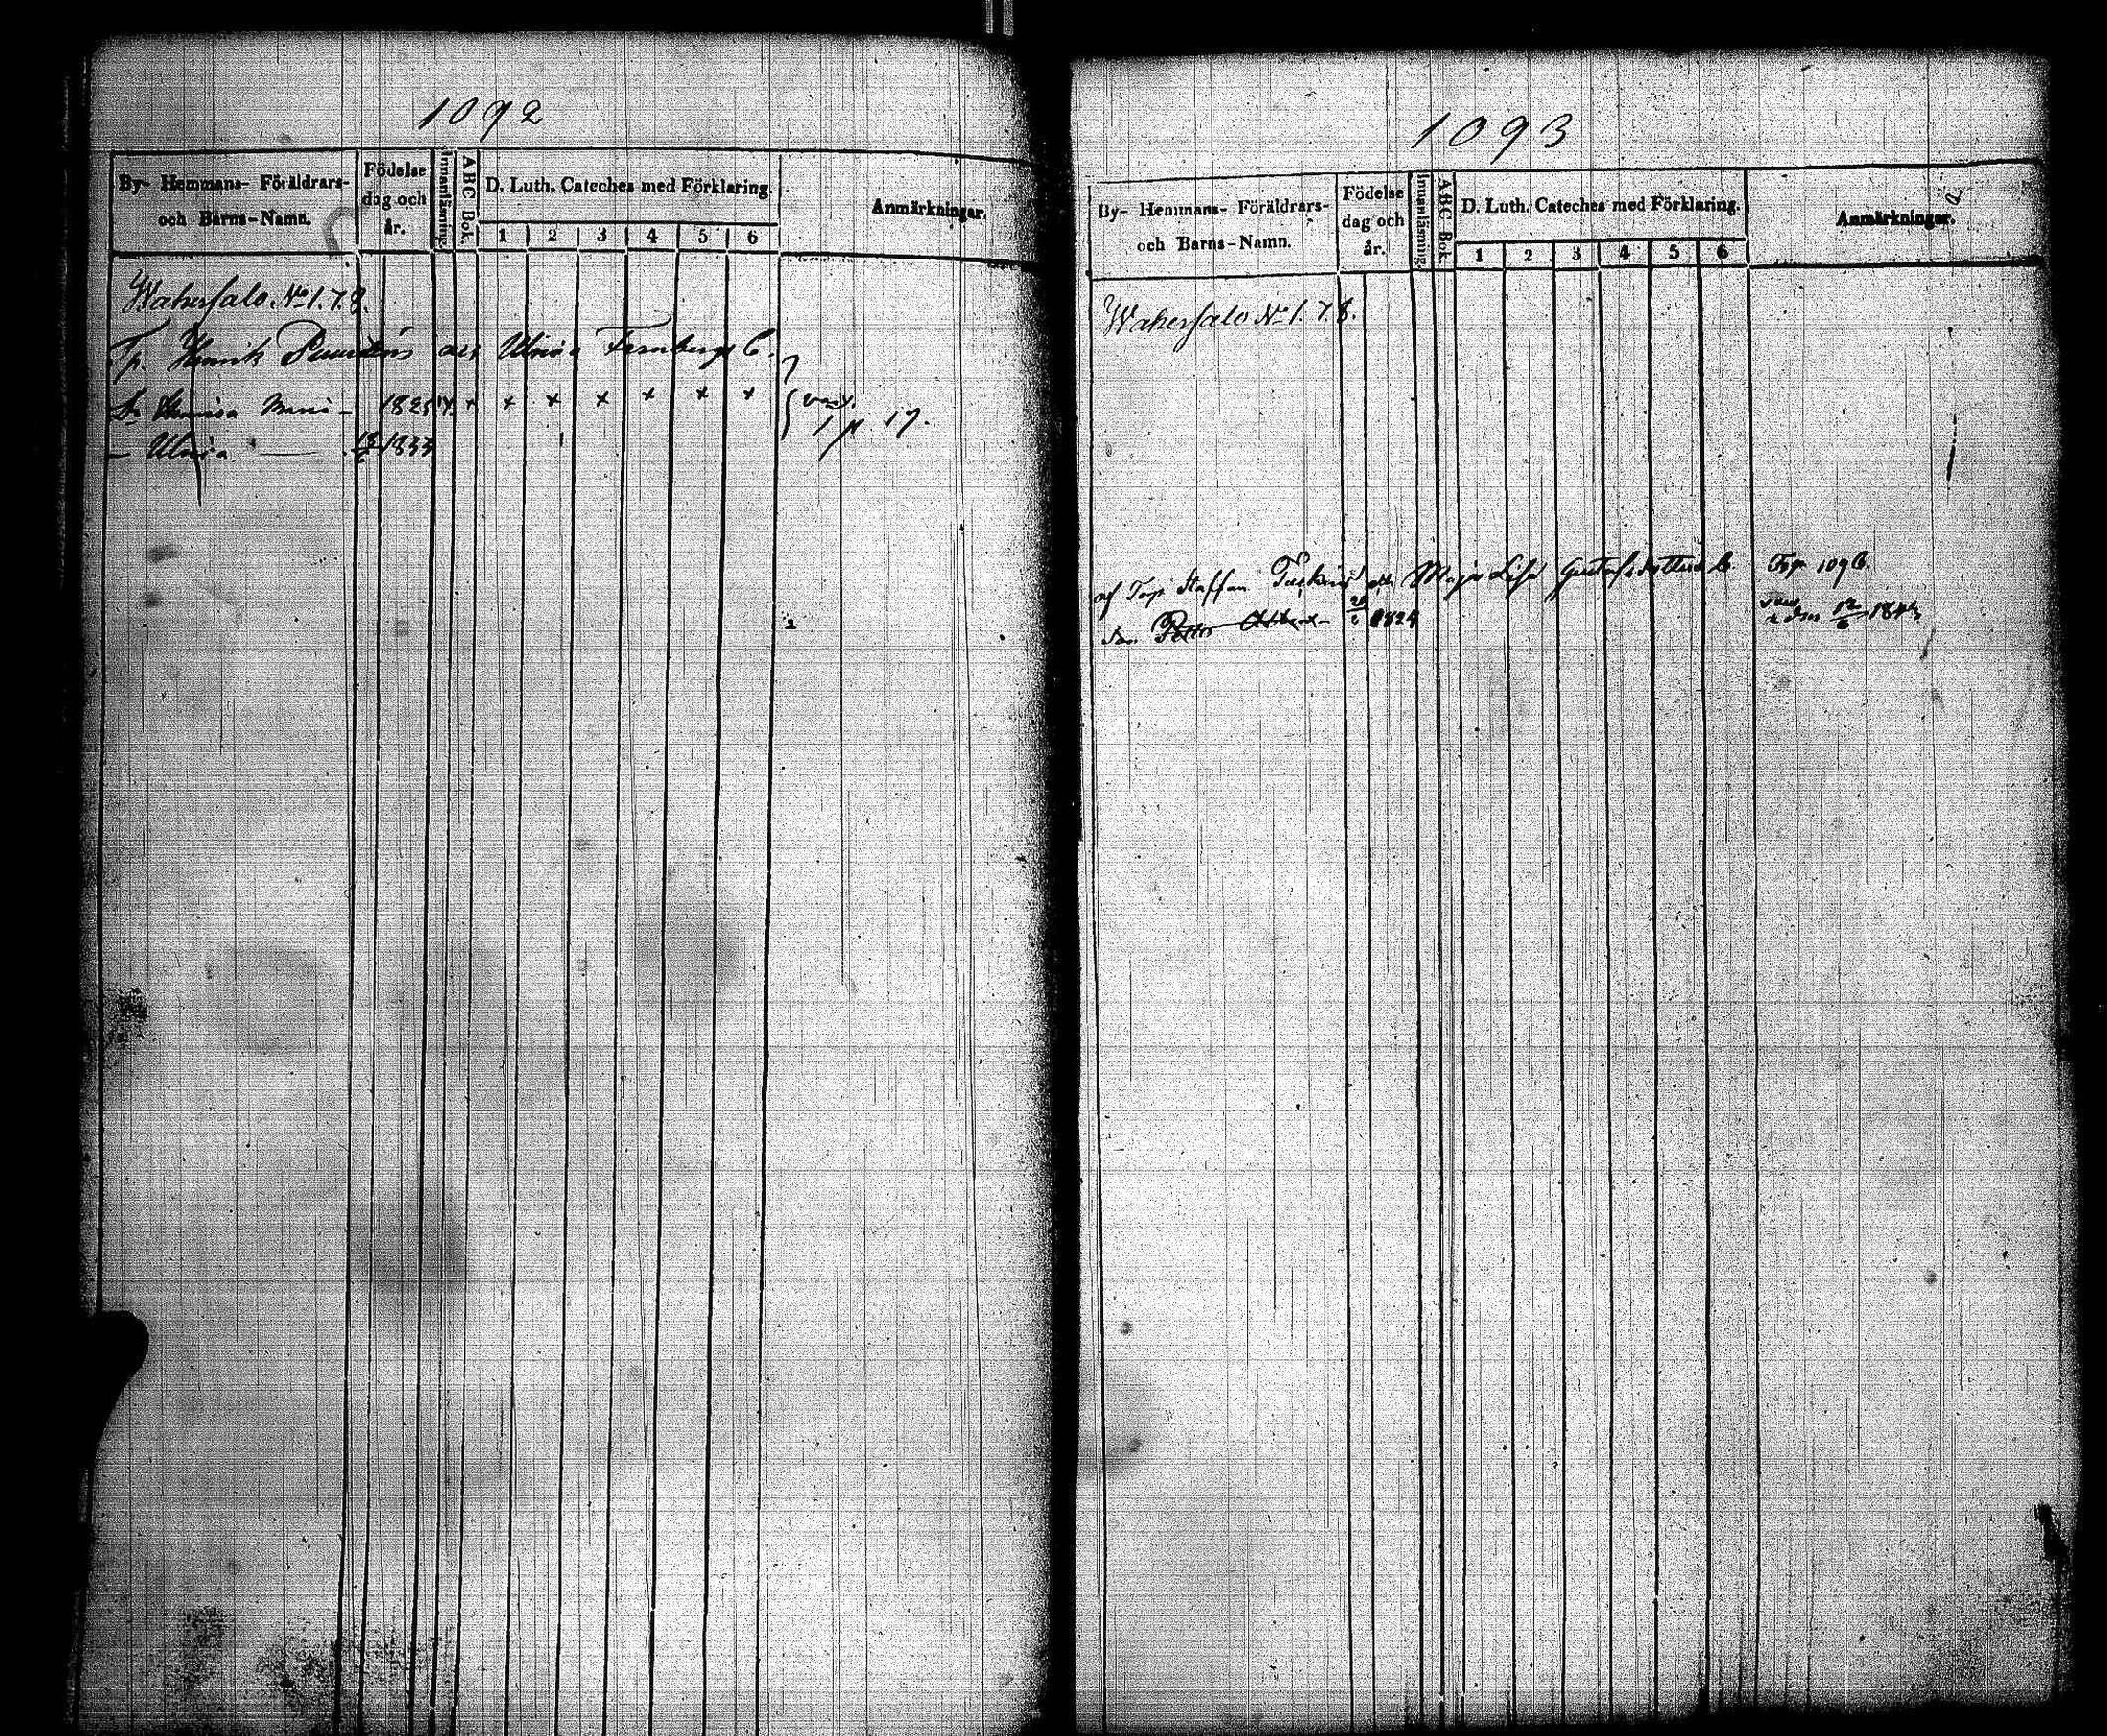 1092
By- Hemmans- Föräldrars- och Barns-Namn.
Födelse dag och år.
Innanläsning.
ABC Bok.
D. Luth. Cateches med Förklaring.
1 2 3 4 5 6
Anmärkningar.
Wakersalo No 1. 7. 8.
Tp. Henrik och Ulrica B.
Maria 1825 x x x x x x x
– Ulrica — 1833
p. 17.
1093
By- Hemmans- Föräldrars- och Barns-Namn.
Födelse dag och år.
Innanläsning.
ABC Bok.
D. Luth. Cateches med Förklaring.
1 2 3 4 5 6
Anmärkningar.
Wakersalo No 1. 7. 8.
af Torp Staffan och Maja Lisa Gustafsdotter B. Tp. 1096.
Son Petter 1824